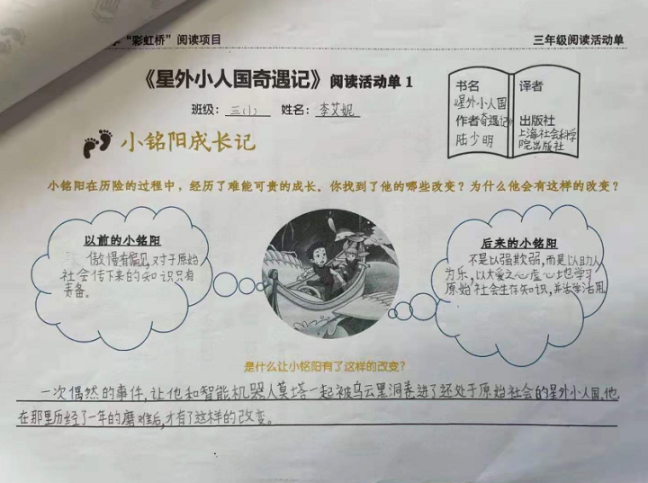 “彩虹桥”阅读项目
三年级阅读活动单
《星外小人国奇遇记》阅读活动单 1
班级：三(1) 姓名：李艾妮
书名
星外小人国
作者奇遇记
陆少明
译者
出版社
上海社会科学
院出版社
小铭阳成长记
小铭阳在历险的过程中，经历了难能可贵的成长。你找到了他的哪些改变？为什么他会有这样的改变？
以前的小铭阳
傲慢有偏见，对于原始
社会传下来的知识只有
责备。
后来的小铭阳
不是以强欺弱，而是以助人
为乐，以大爱之心虚心地学习
原始社会生存知识，并
是什么让小铭阳有了这样的改变？
一次偶然的事件，让他和智能机器人莫塔一起被乌云黑洞卷进了还处于原始社会的星外小人国，他
在那里历经了一年的磨难后，才有了这样的改变。